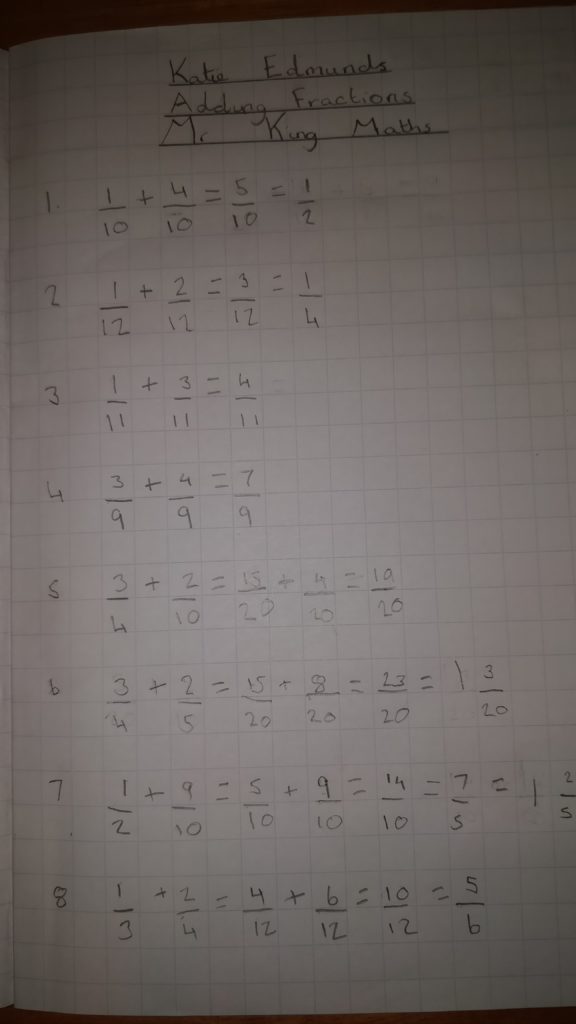 Katie Edmunds
Adding Fractions
Mr King Maths
1. 1/10 + 4/10 = 5/10 = 1/2
2 1/12 + 2/12 = 3/12 = 1/4
3 1/11 + 3/11 = 4/11
4 3/9 + 4/9 = 7/9
5 3/4 + 2/10 = 15/20 + 4/20 = 19/20
6 3/4 + 2/5 = 15/20 + 8/20 = 23/20 = 1 3/20
7 1/2 + 9/10 = 5/10 + 9/10 = 14/10 = 7/5 = 1 2/5
8 1/3 + 2/4 = 4/12 + 6/12 = 10/12 = 5/6